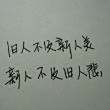 旧人不及新人美
新人不及旧人悲